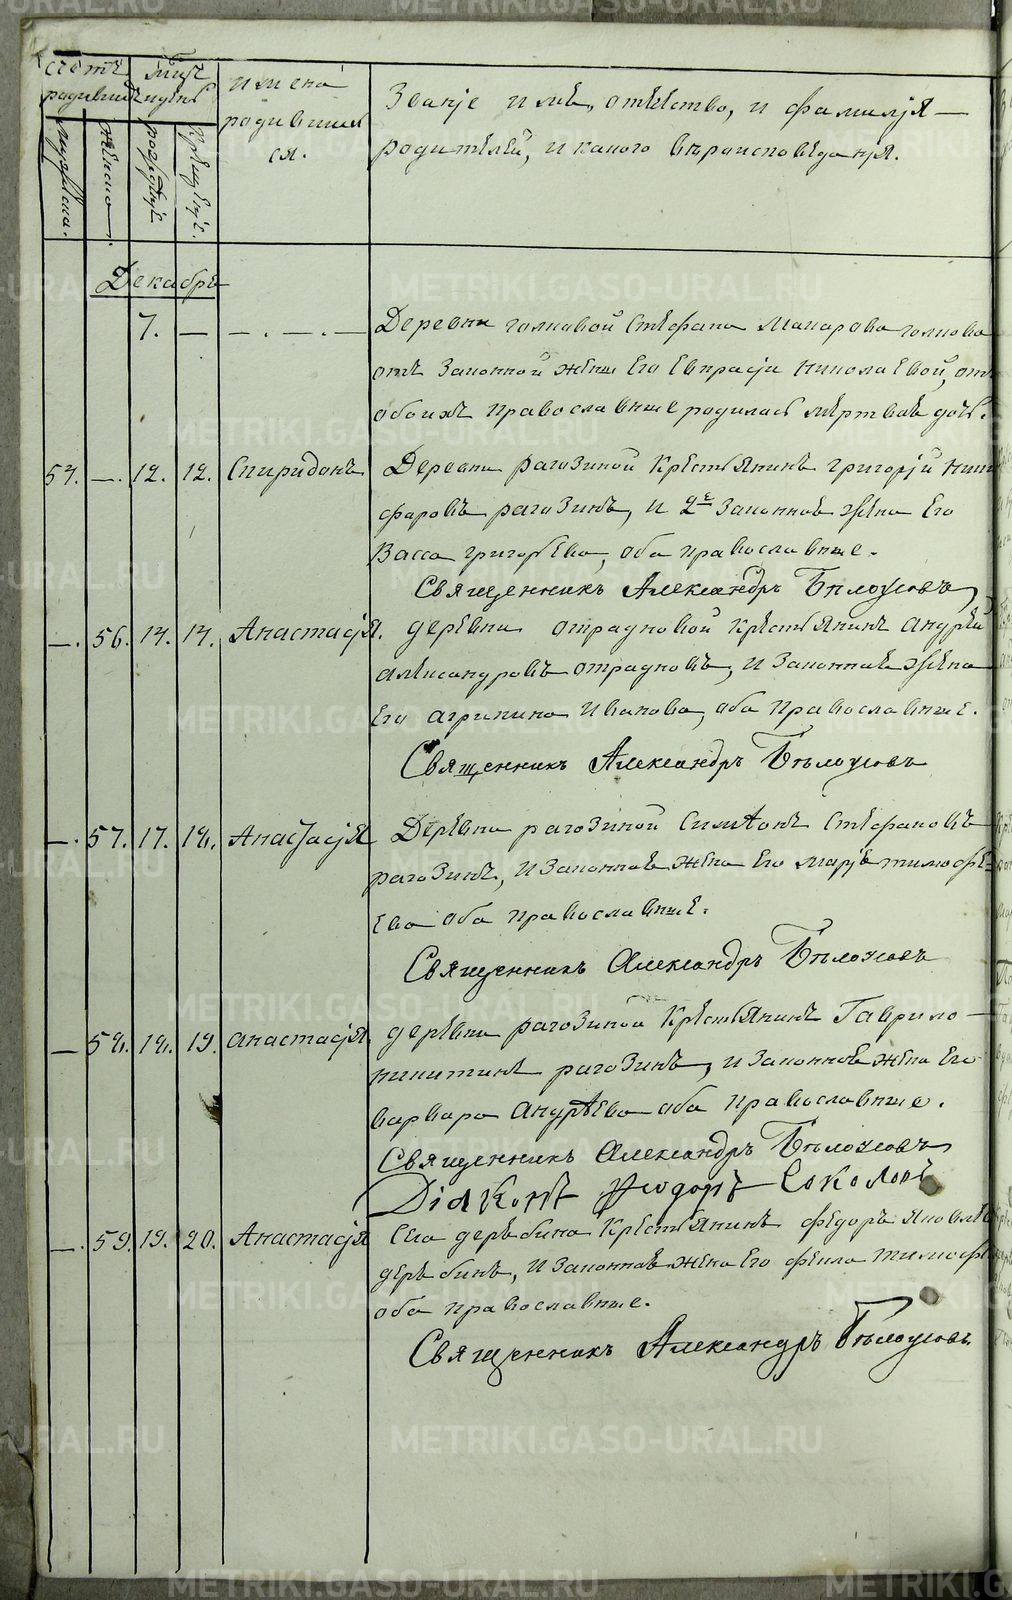 счетъ родившихся
мѣсяцъ и день
имена родившихся.
Званіе имя, отчество, и фамилія
родителей, и какого вѣроисповѣданія.
мужеска.
женска.
рожденія
крещенія.
Декабрь
7. — — . — . —
Деревни голковой Стефана Макарова голкова
отъ законной жены его Евпраксіи николаевой, отъ
обоихъ православные родилась мертвая дочь.
57. —. 12. 12. Спиридонъ
Деревни рагозиной крестьянинъ григорій ники
форовъ рагозинъ, и 2я законная жена его
Васса григорьева, оба православные.
Священникъ Александръ Бѣлоусовъ
—. 56. 14. 14. Анастасія.
деревни отрадновой крестьянинъ андрей
александровъ отрадновъ, и законная жена
его агрипина иванова, оба православные.
Священникъ Александръ Бѣлоусовъ
—. 57. 17. 18. Анастасія
Деревни рагозиной Симіонъ Стефановъ
рагозинъ, и законная жена его марія тимофе
ева оба православные.
Священникъ Александръ Бѣлоусовъ
— 58. 18. 19. анастасія.
деревни рагозиной крестьянинъ Гаврило
никитинъ рагозинъ, и законная жена его
варвара андреева оба православные.
Священникъ Александръ Бѣлоусовъ
Діаконъ Феодоръ Соколовъ
—. 59. 19. 20. Анастасія
Села дерябина крестьянинъ федоръ яковлевъ
дерябинъ, и законная жена его фекла тимоф
оба православные.
Священникъ Александръ Бѣлоусовъ
METRIKI.GASO-URAL.RU